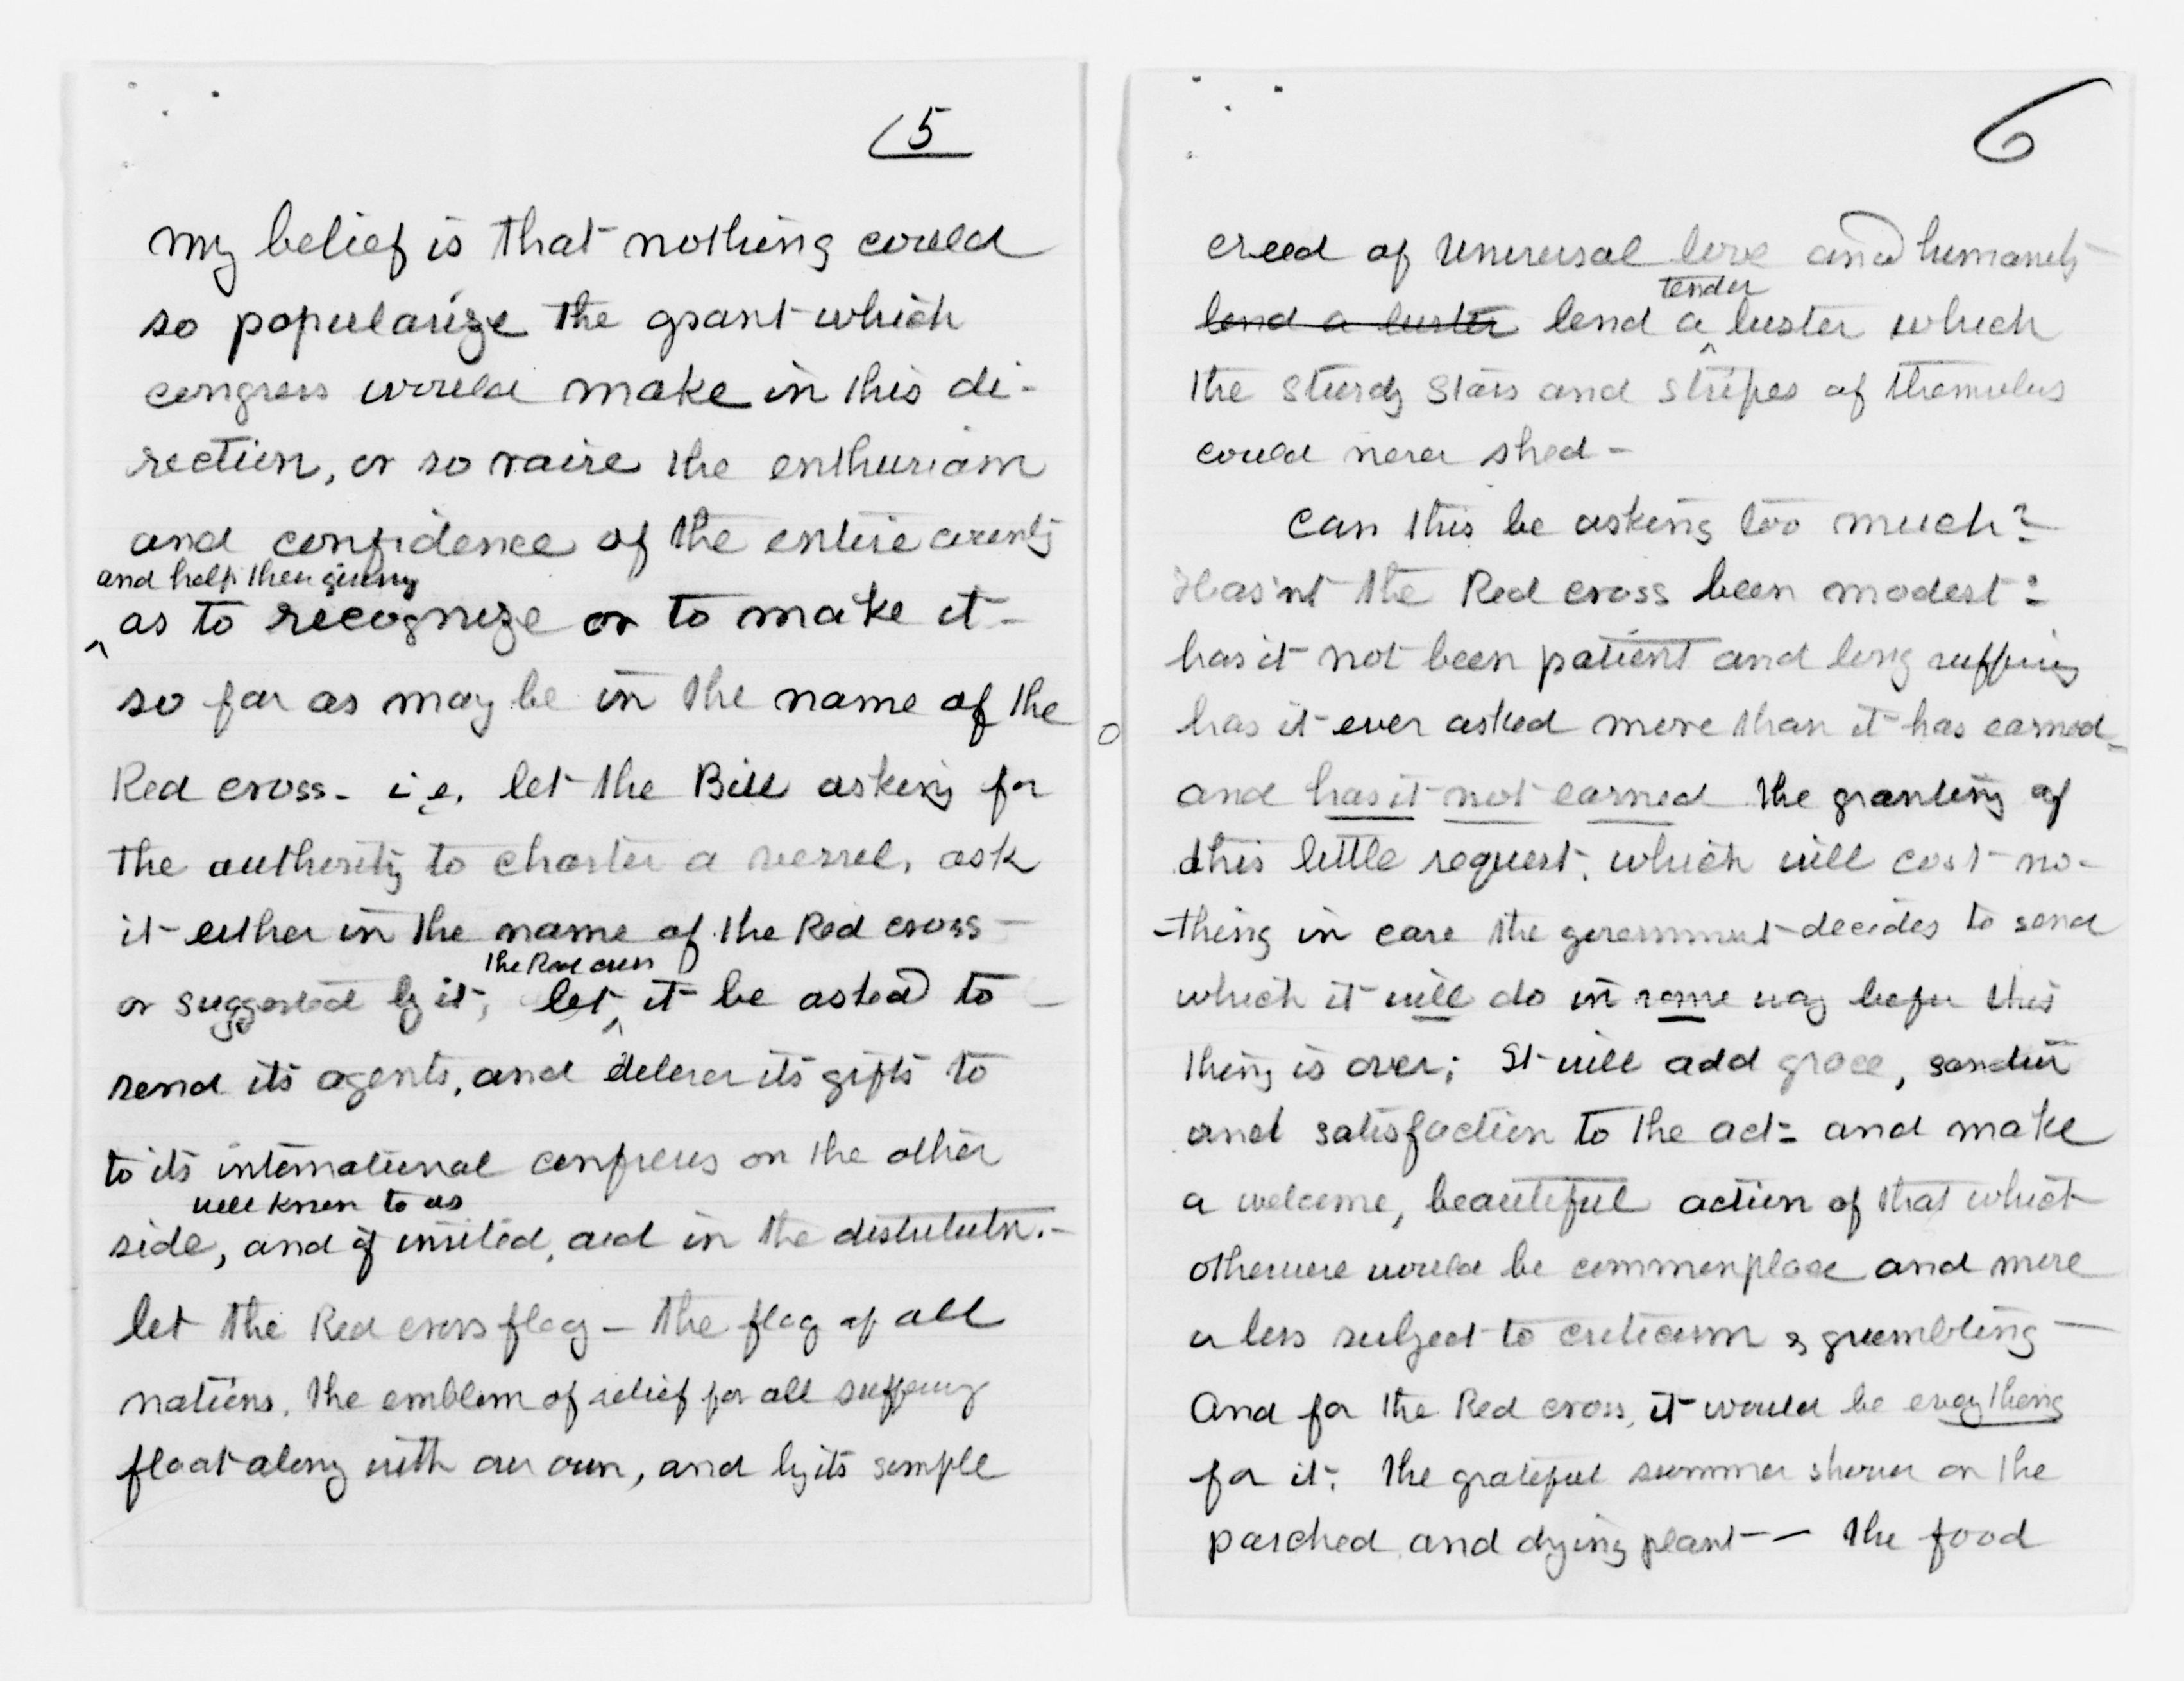 5
my belief is that nothing could
so popularize the grant which
congress would make in this di-
rection, or so raise the enthusiasm
and confidence of the entire county
and help their giving
^ as to recognize or to make it -
so far as may be in the name of the
Red cross - i.e. let the Bill asking for
the authority to charter a vessel, ask
it either in the name of the Red cross -
the Red cross
or suggested by it; let ^ it be asked to
send its agents, and deliver its gifts to
to its international confreres on the other
well known to us
side, and if invited, aid in the distributn. -
let the Red cross flag - the flag of all
nations, the emblem of relief for all suffering
float along with our own, and by its simple
6
creed of universal love and humanity
tender
lend a luster lend a ^ luster which
the sturdy stars and stripes of themselves
could never shed -
Can this be asking too much?
Has'nt the Red cross been modest:
has it not been patient and long suffering
has it ever asked more than it has earned -
and has it not earned the granting of
this little request, which will cost no-
-thing in case the government decides to send
which it will do in some way before this
thing is over; It will add grace,
and satisfaction to the act - and make
a welcome, beautiful action of that which
otherwise would be commonplace and more
or less subject to criticism & grumbling -
And for the Red cross, it would be everything
for it: the grateful summer shower on the
parched and dying plant - - the food